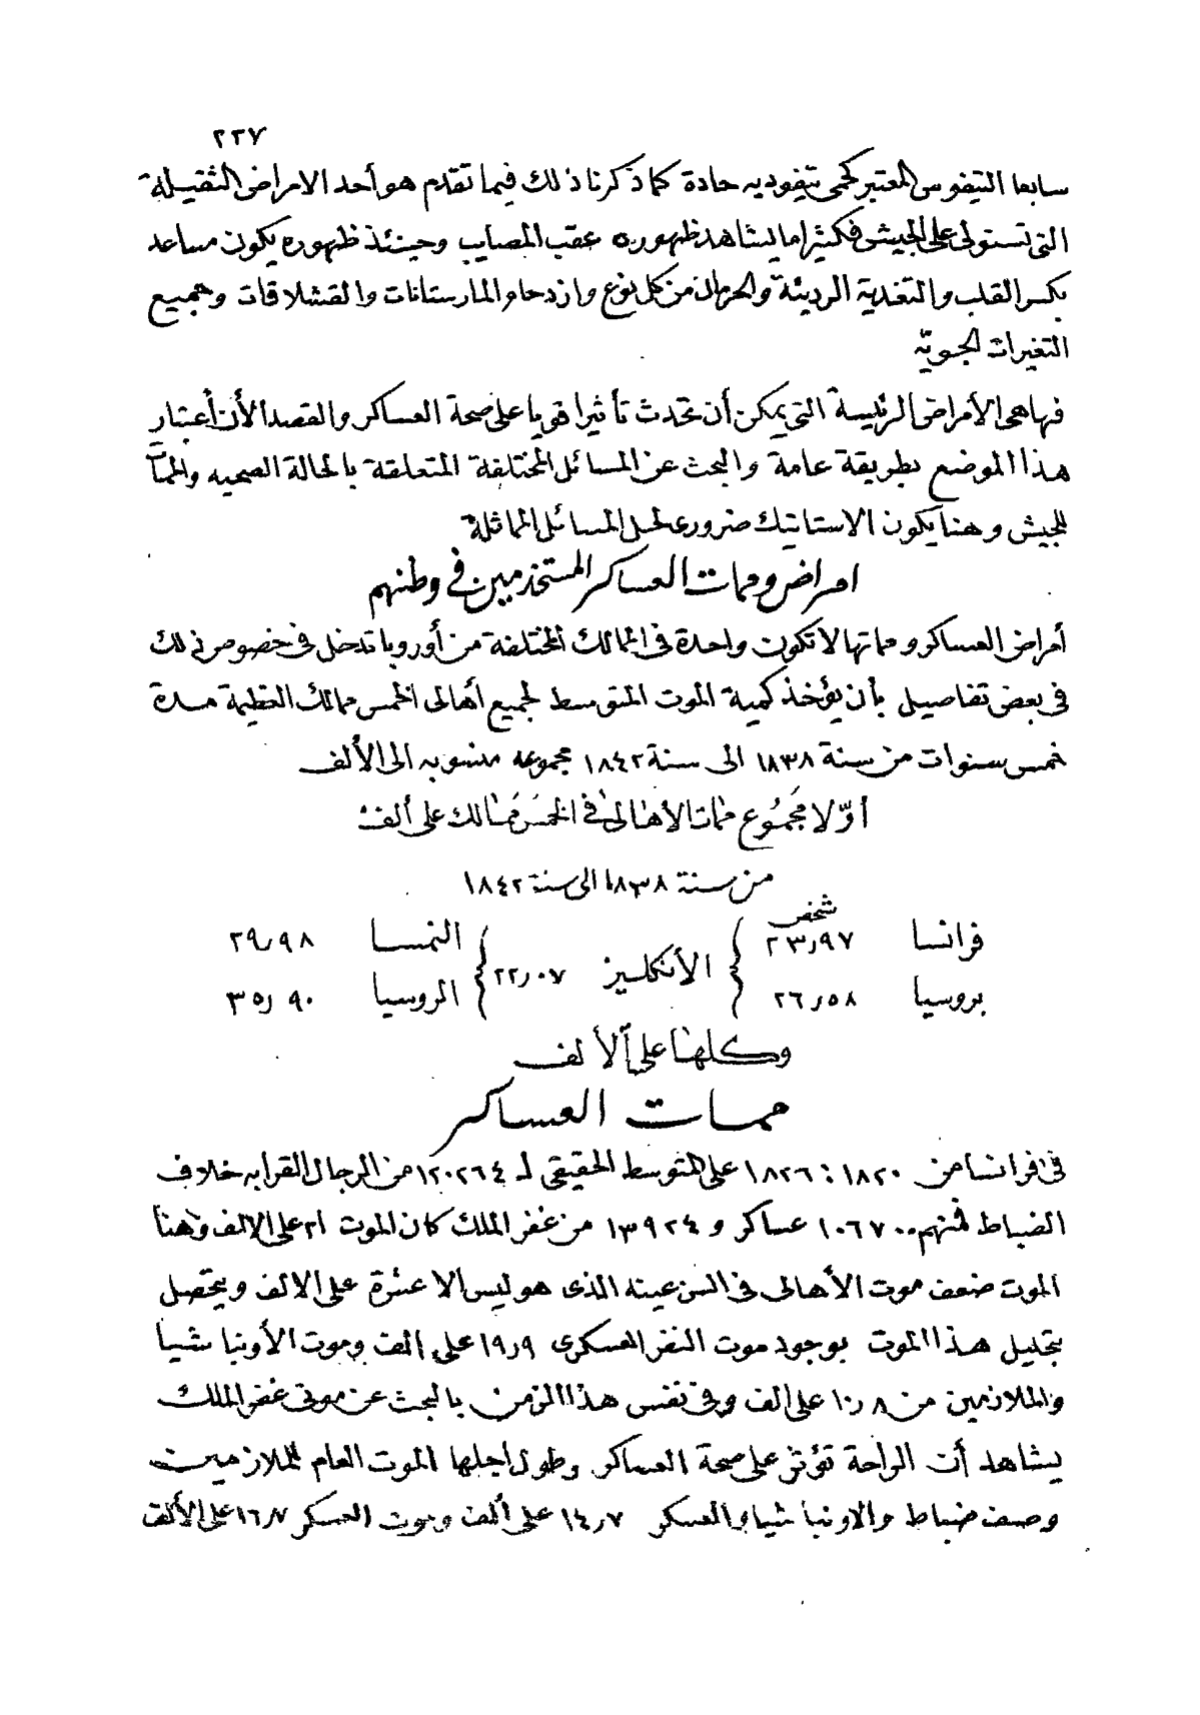 ٢٢٧
سابعا التيفوس المعتبر كحمى تيفوديه حادة كما ذكرنا ذلك فيما تقدم هو أحد الامراض الثقيلة
التى تستولى على الجيش فكثيرا ما يشاهد ظهوره عقب المصايب وحينئذ ظهوره يكون مساعد
بكسر القلب والتغذية الرديئة والحرمان من كل نوع وازدحام المارستانات والقشلاقات وجميع
التغيرات الجوية
فهاهى الأمراض الرئيسة التى يمكن أن تحدث تأثيرا قويا على صحة العساكر والقصد الأن أعتبار
هذا الموضع بطريقة عامة والبحث عن المسائل المختلفة المتعلقة بالحالة الصحيه والممات
للجيش وهنا يكون الاستاتيك ضرورى لحل المسائل المماثلة
امراض وممات العساكر المستخدمين فى وطنهم
أمراض العساكر ومماتها لا تكون واحدة فى الممالك المختلفة من أوروبا تدخل فى خصوص ذلك
فى بعض تفاصيل بأن يؤخذ كمية الموت المتوسط لجميع أهالى الخمس ممالك العظيمة مدة
خمس سنوات من سنة ١٨٣٨ الى سنة ١٨٤٢ مجموعه منسوبه الى الألف
أوّلا مجموع ممات الأهالى فى الخمس ممالك على ألف
من سنة ١٨٣٨ الى سنة ١٨٤٢
شخص
فرانسا ٢٣٫٩٧ الأنكليز ٢٢٫٠٧ النمسا ٢٩٫٩٨
بروسيا ٢٦٫٥٨ الروسيا ٣٥٫٩٠
وكلها على الألف
ممات العساكر
فى فرانسا من ١٨٢٠ : ١٨٢٦ على المتوسط الحقيقى لـ ١٢٠٢٦٤ من الرجال القرابه خلاف
الضباط فمنهم ١٠٦٧٠٠ عساكر و ١٣٩٢٤ من غفر الملك كان الموت ٢١ على الالف وهنا
الموت ضعف موت الأهالى فى السن عينه الذى هو ليس الا عشرة على الالف ويتحصل
بتحليل هذا الموت بوجود موت النفر العسكرى ١٩٫٩ على الف وموت الأونباشيا
والملازمين من ١٠٫٨ على الف وفى نفس هذا الزمن بالبحث عن موتى غفر الملك
يشاهد أن الراحة تؤثر على صحة العساكر وطول اجلها الموت العام للملازمين
وصف ضباط والاونباشيا والعسكر ١٤٫٧ على ألف وموت العسكر ١٦٫٧ على الألف